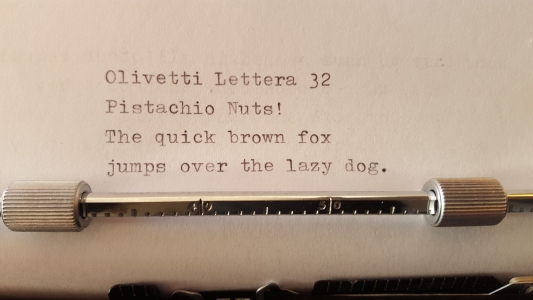 Olivetti Lettera 32
Pistachio Nuts!
The quick brown fox
jumps over the lazy dog.
40 50